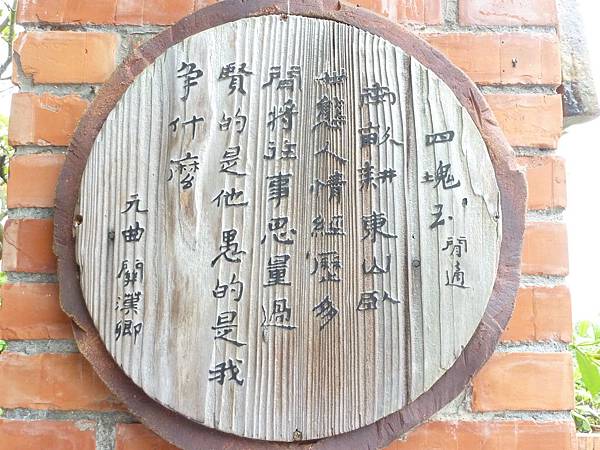 四塊玉 閒適
南畝耕東山臥
世態人情經歷多
閒將往事思量過
賢的是他愚的是我
爭什麼
元曲 關漢卿